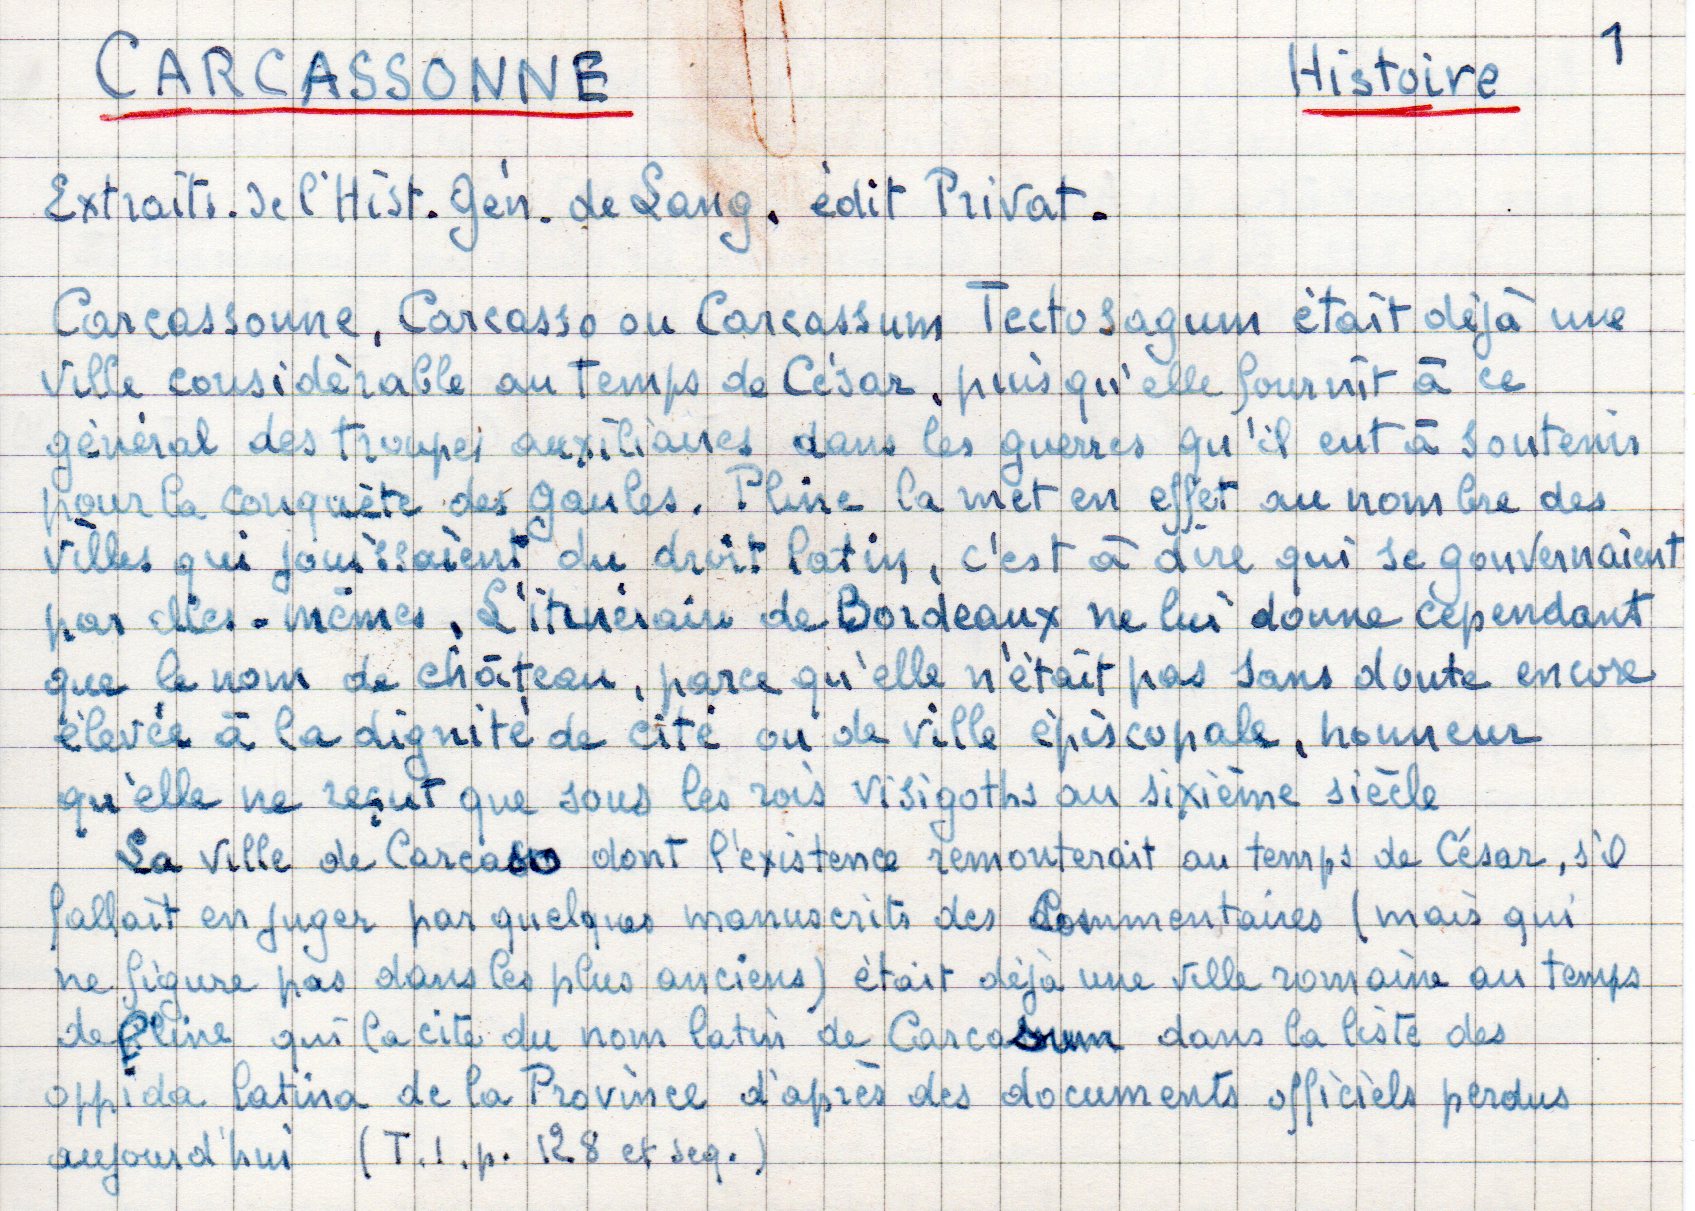 CARCASSONNE Histoire 1
Extraits de l'Hist. Gén. de Lang. édit Privat.
Carcassonne, Carcasso ou Carcassum Tectosagum était déjà une
ville considérable au temps de César, puisqu'elle fournit à ce
général des troupes auxiliaires dans les guerres qu'il eut à soutenir
pour la conquête des Gaules. Pline la met en effet au nombre des
villes qui jouissaient du droit latin, c'est à dire qui se gouvernaient
par elles-mêmes. L'itinéraire de Bordeaux ne lui donne cependant
que le nom de château, parce qu'elle n'était pas sans doute encore
élevée à la dignité de cité ou de ville épiscopale, honneur
qu'elle ne reçut que sous les rois visigoths au sixième siècle
La ville de Carcaso dont l'existence remonterait au temps de César, s'il
fallait en juger par quelques manuscrits des Commentaires (mais qui
ne figure pas dans les plus anciens) était déjà une ville romaine au temps
de Pline qui la cite du nom latin de Carcasum dans la liste des
oppida latina de la Province d'après des documents officiels perdus
aujourd'hui (T.1.p. 128 et seq.)